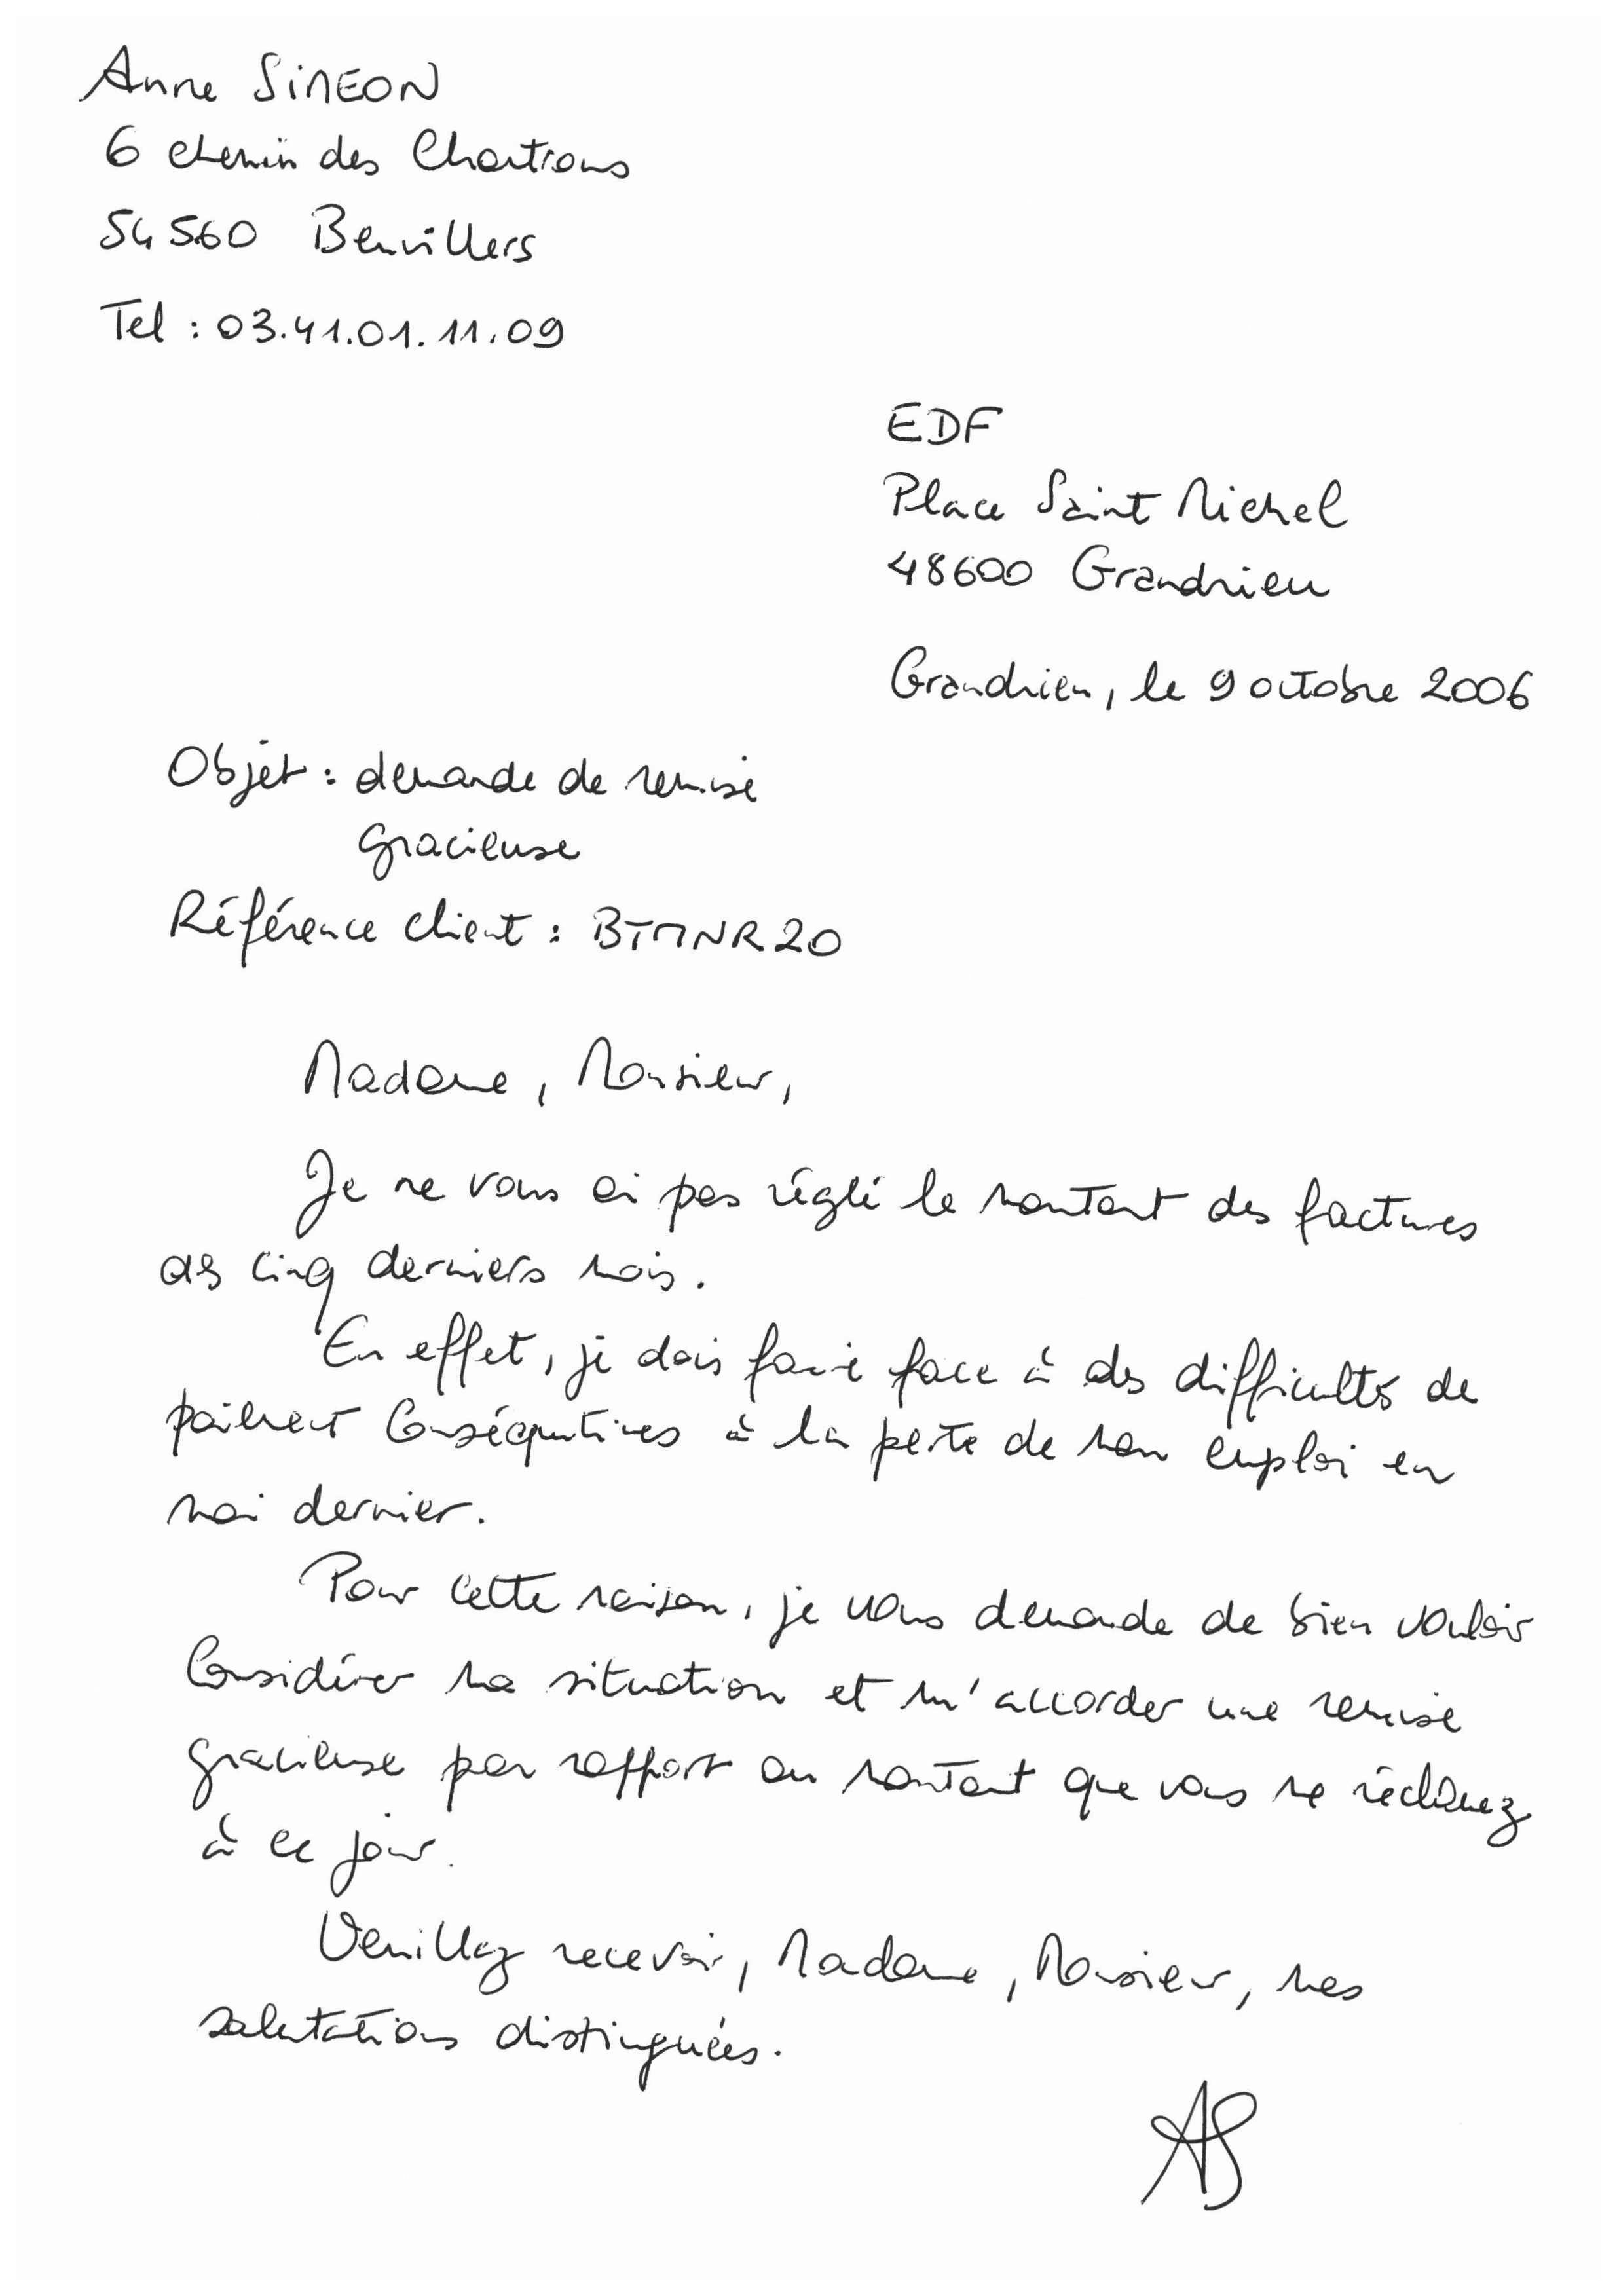 Anne SIMEON
6 chemin des Chartrons
54560 Beuvillers
Tel : 03.41.01.11.09
EDF
Place Saint Michel
48600 Grandrieu
Grandrieu, le 9 octobre 2006
Objet : demande de remise
gracieuse
Référence client : BTMNR20
Madame, Monsieur,
Je ne vous ai pas réglé le montant des factures
des cinq derniers mois.
En effet, je dois faire face à des difficultés de
paiement conséqutives à la perte de mon emploi en
mai dernier.
Pour cette raison, je vous demande de bien vouloir
considérer ma situation et m'accorder une remise
gracieuse par rapport au montant que vous me réclamez
à ce jour.
Veuillez recevoir, Madame, Monsieur, mes
salutations distinguées.
AS